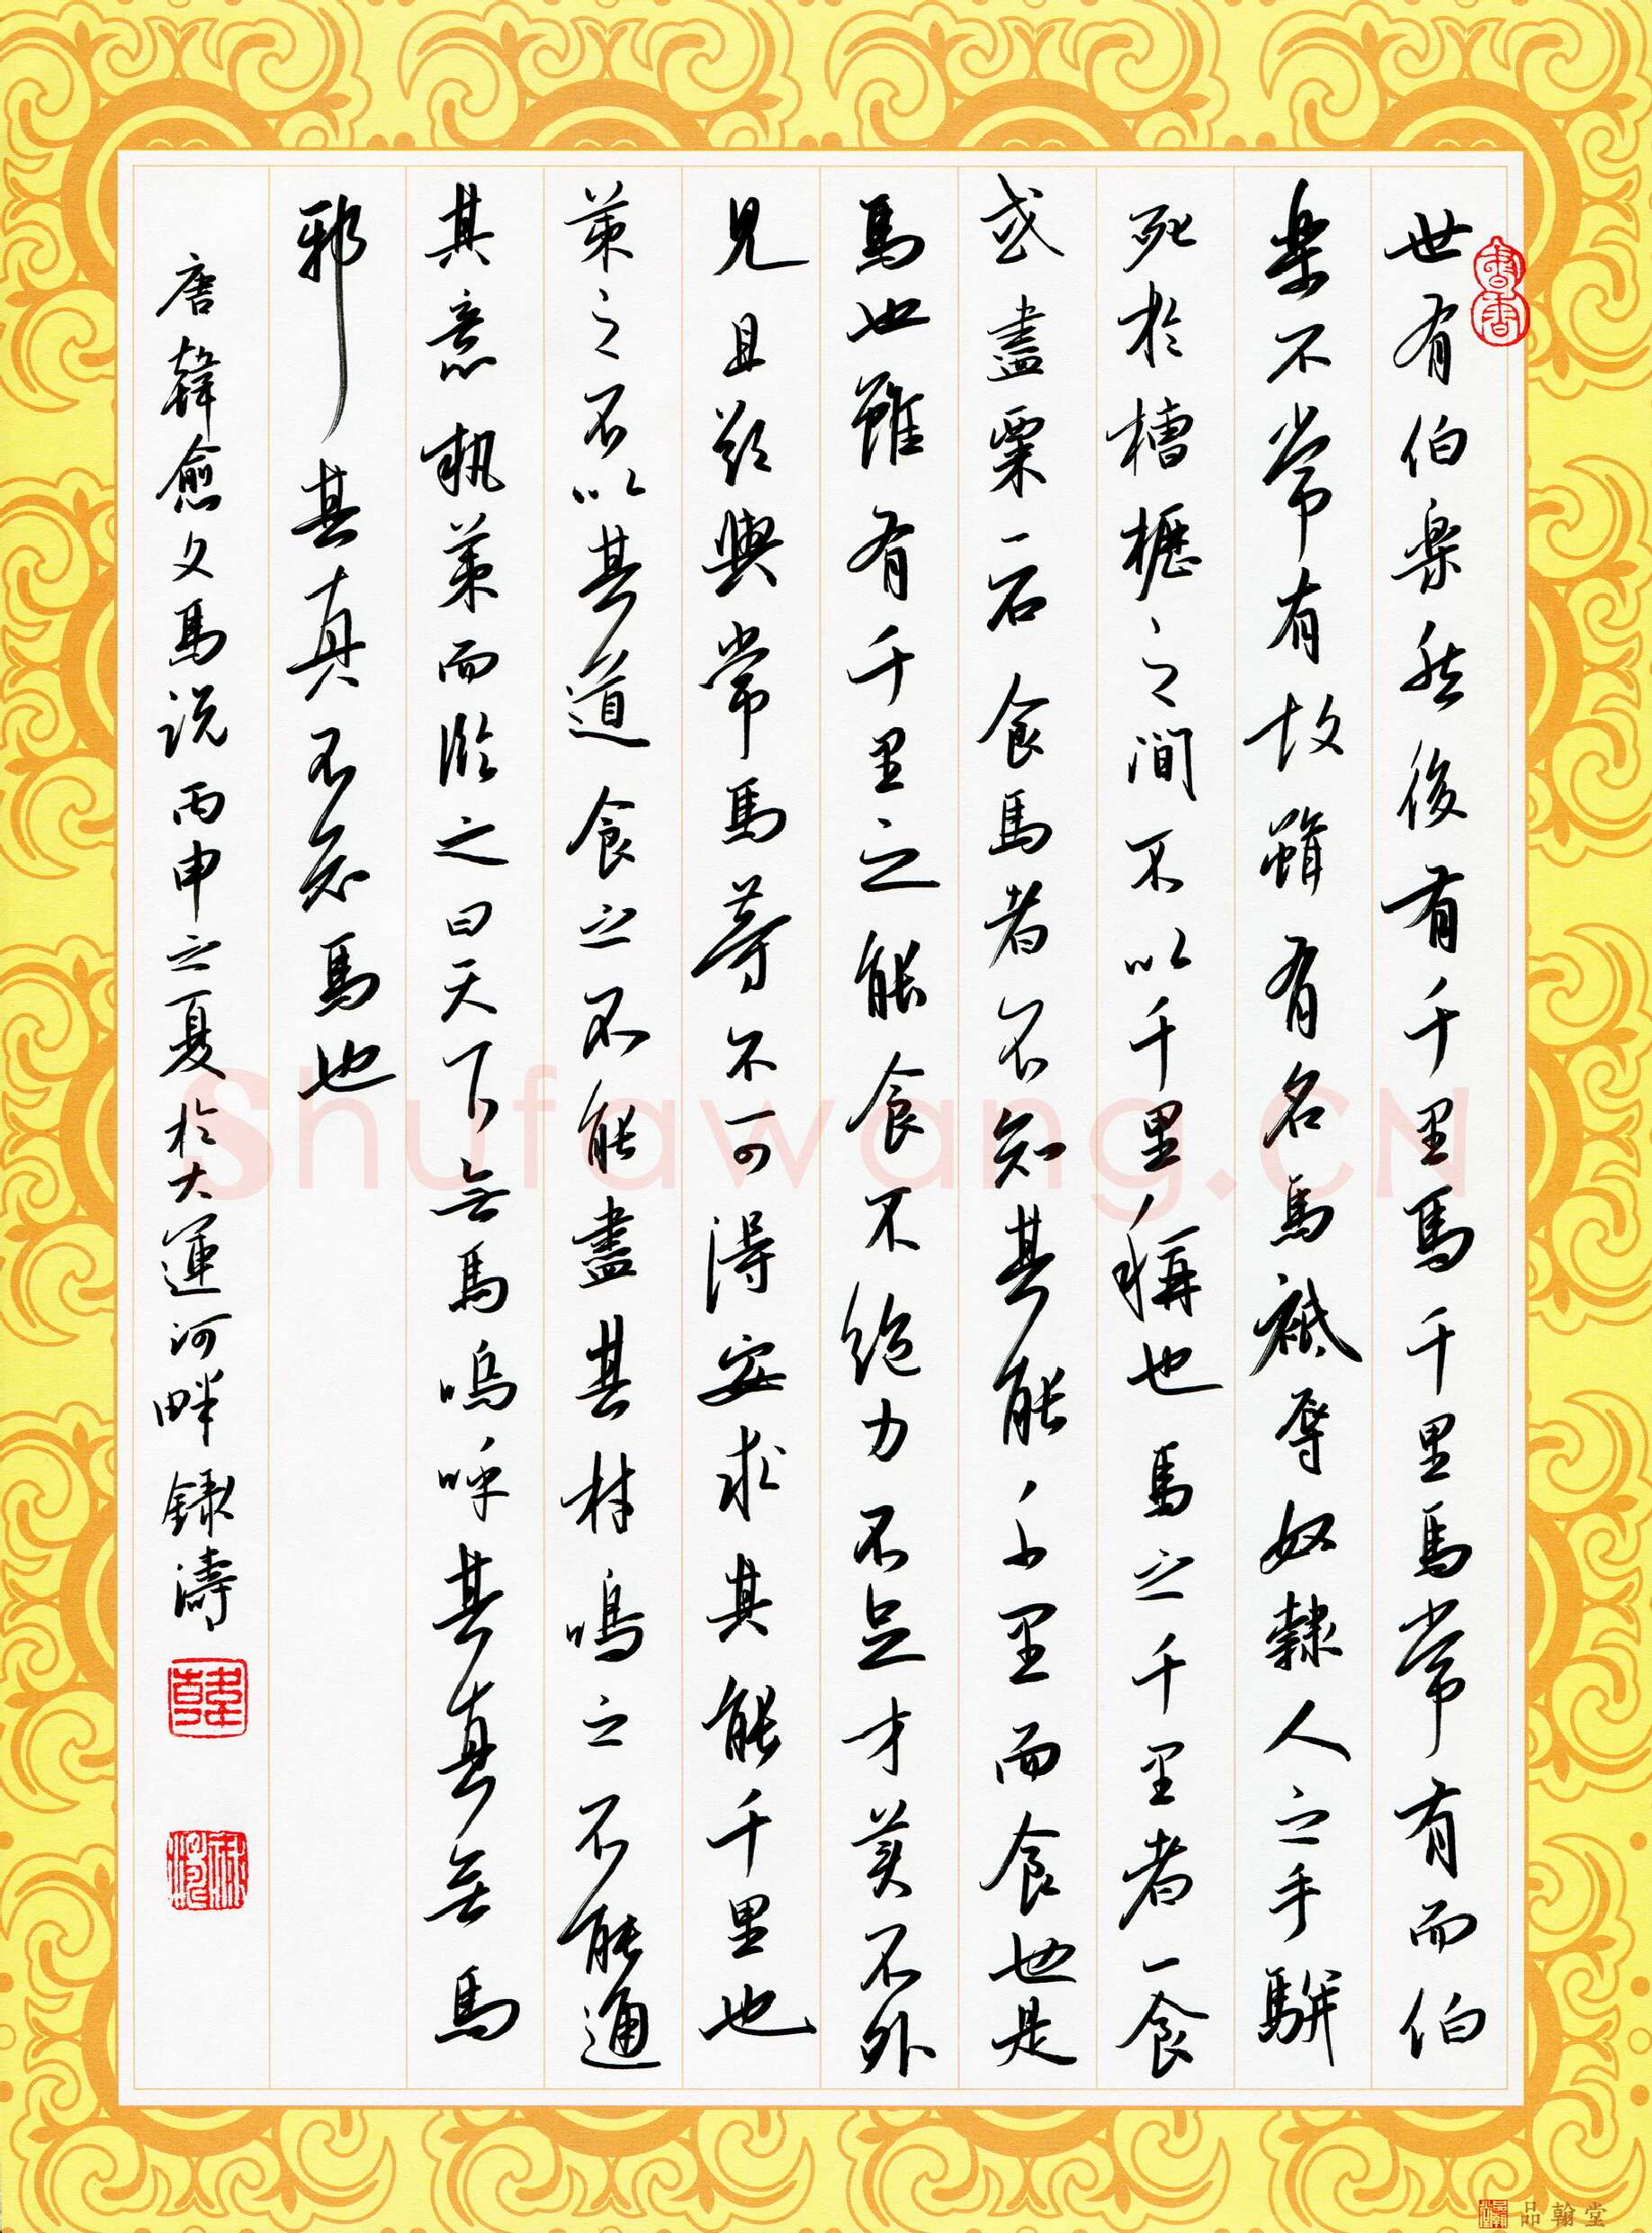 書香
世有伯樂然後有千里馬千里馬常有而伯
樂不常有故雖有名馬祇辱奴隸人之手駢
死於槽櫪之間不以千里稱也馬之千里者一食
或盡粟一石食馬者不知其能千里而食也是
馬也雖有千里之能食不飽力不足才美不外
見且欲與常馬等不可得安求其能千里也
策之不以其道食之不能盡其材鳴之不能通
其意執策而臨之曰天下無馬嗚呼其真無馬
邪其真不知馬也
唐韓愈文馬說丙申之夏於大運河畔濤
韓
Shufawang.CN
品翰堂